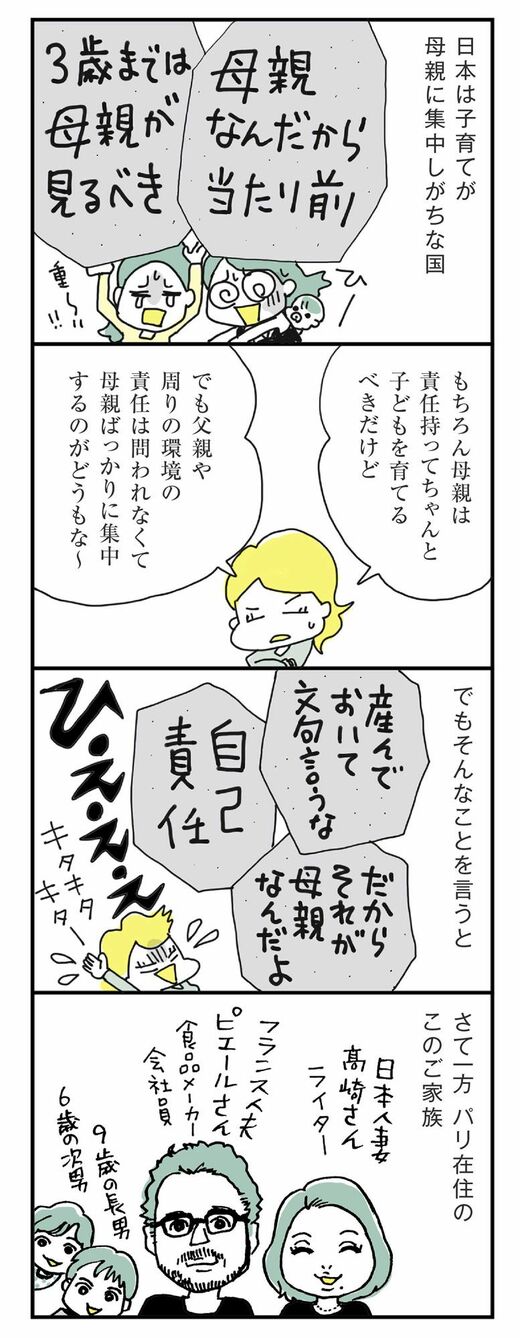 日本は子育てが
母親に集中しがちな国
母親
なんだから
当たり前
3歳までは
母親が
見るべき
ひー
重〜い!!
もちろん母親は
責任持ってちゃんと
子どもを育てる
べきだけど
でも父親や
周りの環境の
責任は問われなくて
母親ばっかりに集中
するのがどうもな〜
でもそんなことを言うと
産んで
おいて
文句言うな
自己
責任
だから
それが
母親
なんだよ
ひ.え.え.え.え
キタキタキター
さて一方 パリ在住の
このご家族
日本人妻
髙崎さん
ライター
フランス人夫
ピエールさん
食品メーカー
会社員
9歳の長男
6歳の次男